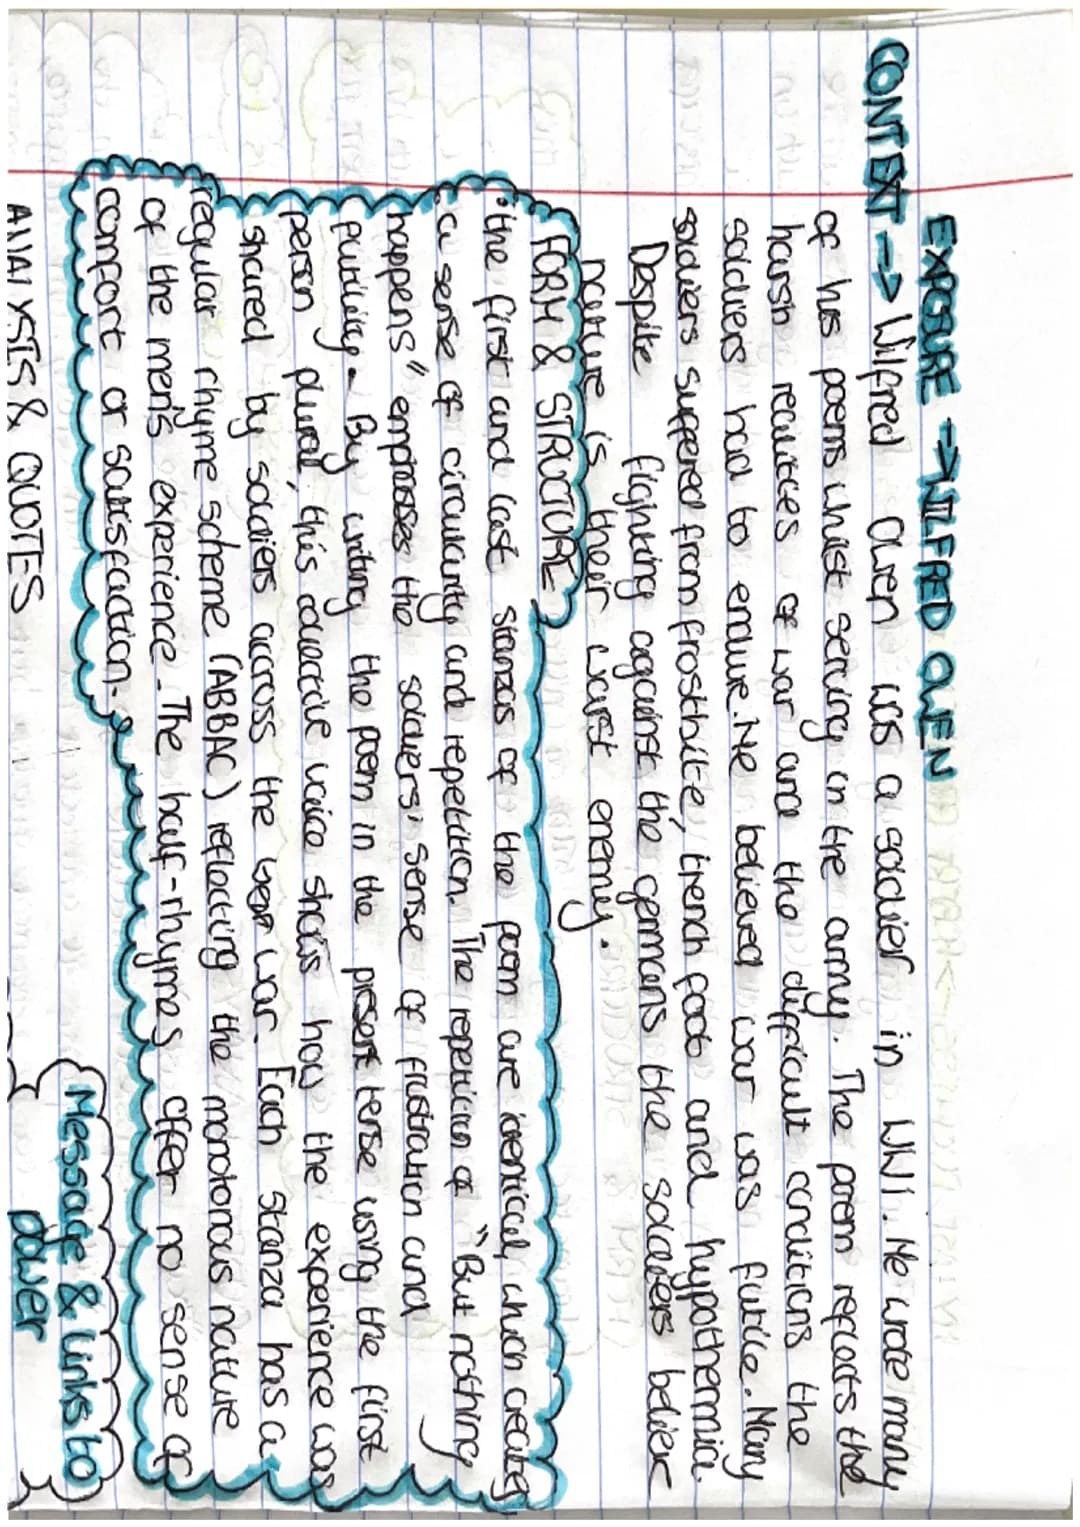 EXPOSURE → WILFRED OWEN
CONTEXT → Wilfred Owen was a soldier in WW1. He wrote many
of his poems whilst serving in the army. The poem reflects the
harsh realities of war and the difficult conditions the
soldiers had to endure. He believed war was futile. Many
soldiers suffered from frostbite, trench foot and hypothermia.
Despite fighting against the germans the soldiers believe
nature is their worst enemy.
FORM & STRUCTURE
• the first and last stanzas of the poem are identical, which creates
a sense of circularity and repetition. The repetition of "But nothing
happens" emphases the soldiers' sense of flustration and
futility. By writing the poem in the present tense using the first
person plural, this collective voice shows how the experience was
shared by soldiers accross the war. Each Stanza has a
regular rhyme scheme (ABBAC) reflecting the monotonous nature
of the men's experience. The half-rhymes offer no sense of
comfort or satisfaction.
Message & links to
power
ANALYSIS & QUOTES